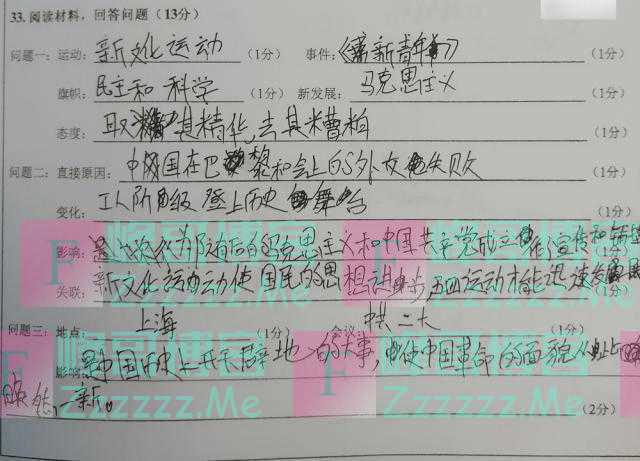 33. 阅读材料，回答问题（13分）
问题一：运动：新文化运动（1分） 事件：《新青年》（1分）
旗帜：民主和科学（1分） 新发展：马克思主义（1分）
态度：取其精华，去其糟粕（1分）
问题二：直接原因：中国在巴黎和会上的外交失败（1分）
变化：工人阶级登上历史舞台（1分）
影响：为后的马克思主义和中国共产党成立宣传和（1分）
关联：新文化运动使国民的思想进步，五四运动才能迅速发展（1分）
问题三：地点：上海（1分） 会议：中共二大（1分）
影响：中国历史上开天辟地的大事，使中国革命的面貌从此
焕然一新。（2分）
Zzzzzz.Me
Zzzzzz.Me